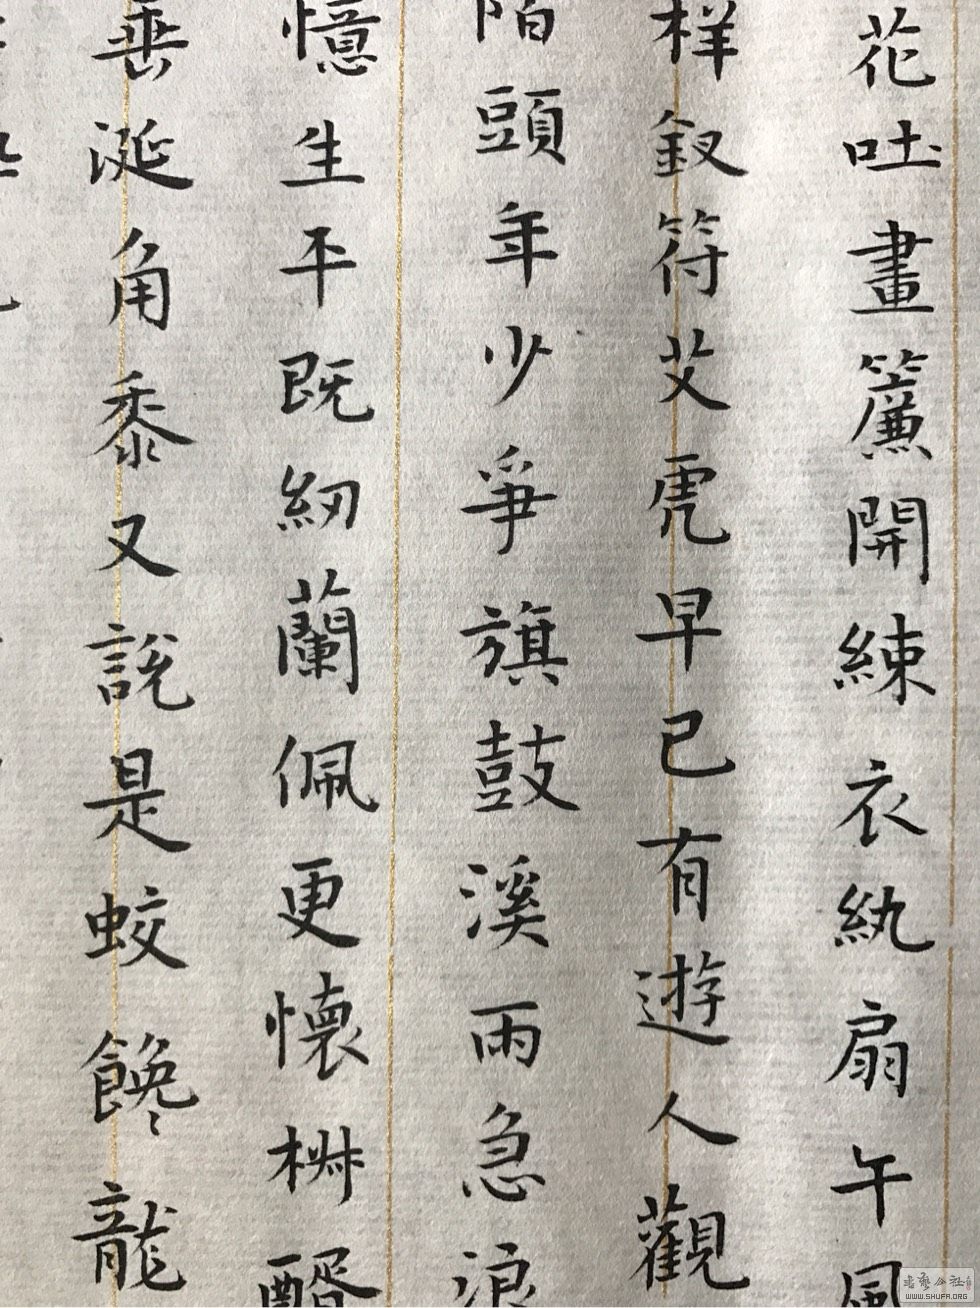 花吐畫簾開練衣紈扇午風
样釵符艾虎早已有遊人觀
陌頭年少爭旗鼓溪雨急浪
憶生平既紉蘭佩更懷椒醑
垂涎角黍又說是蛟饞龍
WWW.SHUFA.ORG